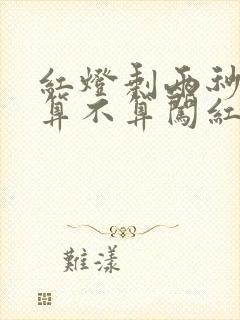 紅燈剩兩秒
算不算闖紅
難漾